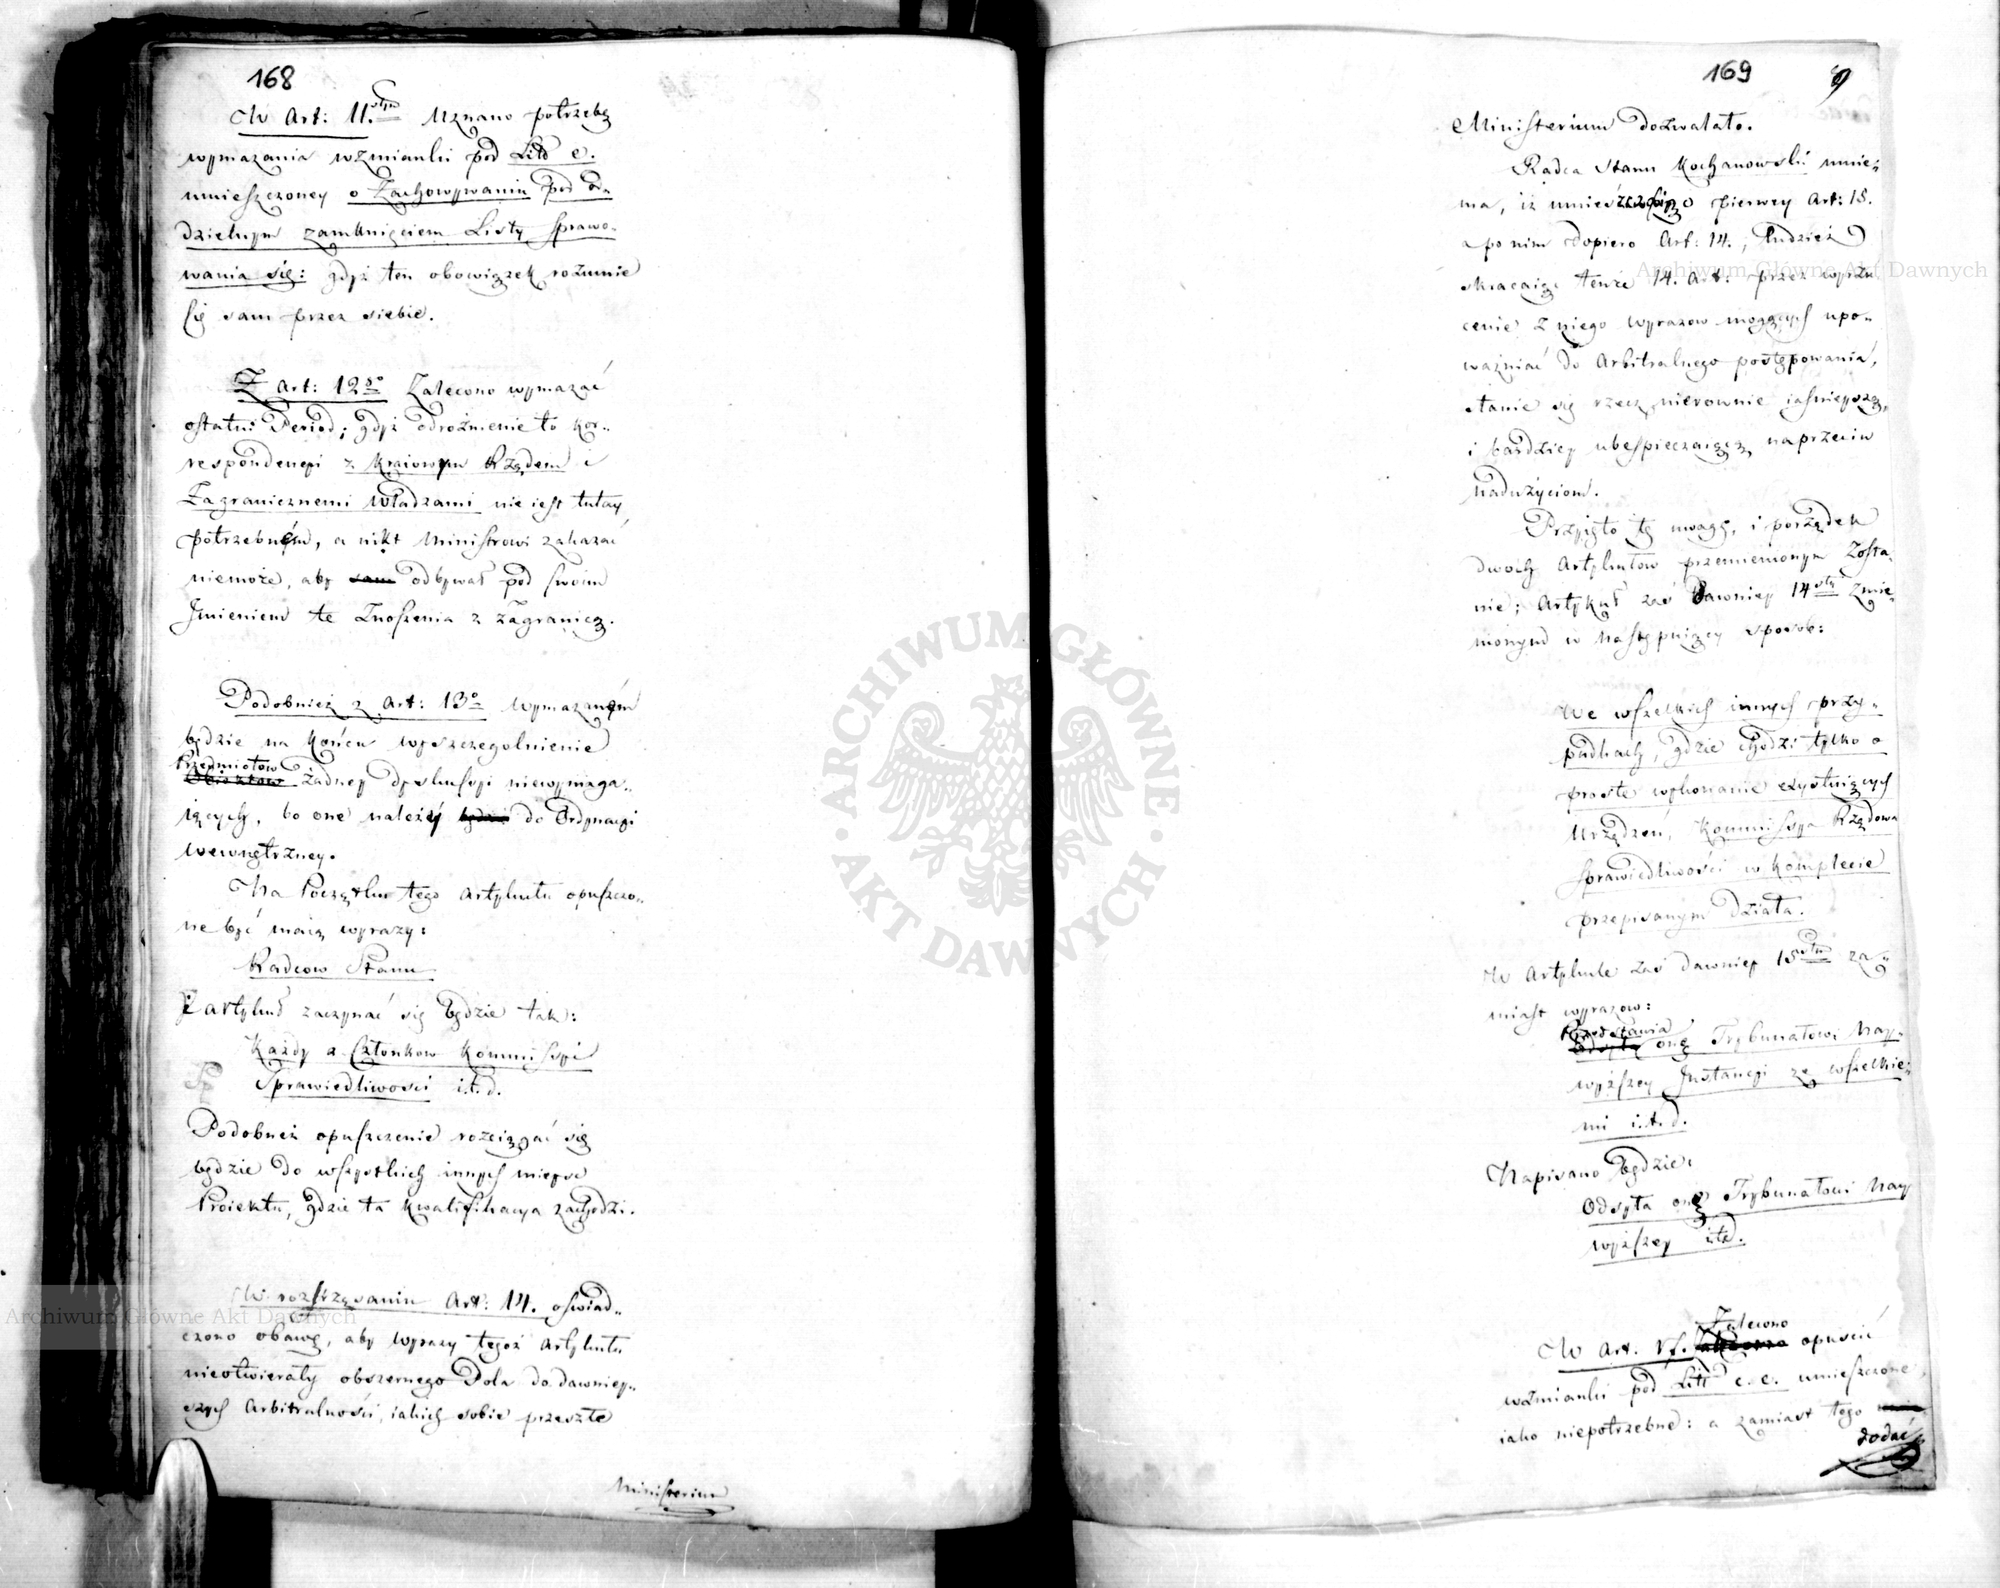 168
W Art: 11.stym Uznano potrzebę
wymazania wzmianki pod Litt e.
umieszczoney o Zachowywaniu pod od-
dzielnym zamknięciem Listy sprawo-
wania się: gdyż ten obowiązek rozumie
się sam przez siebie.
Z Art: 12go Zalecono wymazać
ostatni Period; gdyż odróżnienie to kor-
respondencyi z Kraiowym Rządem i
Zagranicznemi Władzami nie iest tutay
potrzebném, a nikt Ministrowi zakazać
niemoże, aby sam odbywał pod swoim
Jmieniem te Znoszenia z zagranicą.
Podobnież z Art: 13o wymazaném
będzie na końcu wyszczegolnienie
Przedmiotow
Obiektow żadney dyskussyi niewymaga-
iących, bo one należą do Ordynacyi
wewnętrzney.
Na Początku tego Artykułu opuszczo-
ne być maią wyrazy:
Radcow Stanu
i artykuł zaczynać się będzie tak:
Każdy z Członkow Kommissyi
Sprawiedliwości i.t.d.
Podobneż opuszczenie rozciągać się
będzie do wszystkich innych mieysc
Proiektu, gdzie ta kwalifikacya zachodzi.
W roztrząsaniu Art: 14. oświad-
czono obawę, aby wyrazy tegoż Artykułu
nieotwierały obszernego Pola do dawniey-
szych Arbitralności, iakich sobie przeszłe
Ministerium
169
9
Ministerium dozwalało.
Radca Stanu Kochanowski mnie-
ma, iż umieściwszy pierwey Art: 15.
a po nim dopiero Art: 14., tudzież
skracaiąc tenże 14. Art: przez wyrzu-
cenie z niego wyrazow mogących upo-
ważniać do Arbitralnego postępowania,
stanie się rzecz nierownie iaśnieyszą,
i bardziey ubespieczaiącą naprzeciw
nadużyciom.
Przyięto tę uwagę, i porządek
dwoch Artykułow przemienionym zosta-
nie; Artykuł zaś dawniey 14sty zmie-
nionym w następuiący sposob:
We wszelkich innych przy-
padkach, gdzie chodzi tylko o
proste wykonanie exystuiących
Urządzeń, Kommissya Rządowa
Sprawiedliwości w komplecie
przepisanym działa.
W Artykule zaś dawniey 15stym za-
miast wyrazow:
Przedstawia
Odsyła onę Trybunałowi Nay-
wyższey Instancyi ze wszelkie-
mi i.t.d.
Napisano będzie:
Odsyła onę Trybunałowi Nay
wyższey itd.
Zalecono
W Art. 17. opuścić
wzmianki pod Litt c. e. umieszczone,
iako niepotrzebne: a zamiast tego
dodać
ARCHIWUM GŁÓWNE AKT DAWNYCH
Archiwum Główne Akt Dawnych
Archiwum Główne Akt Dawnych